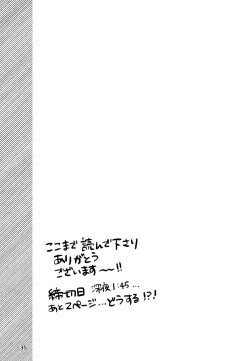 ここまで読んで下さり
ありがとう
ございます〜〜!!
締切日 深夜1:45...
あと2ページ...どうする!?!